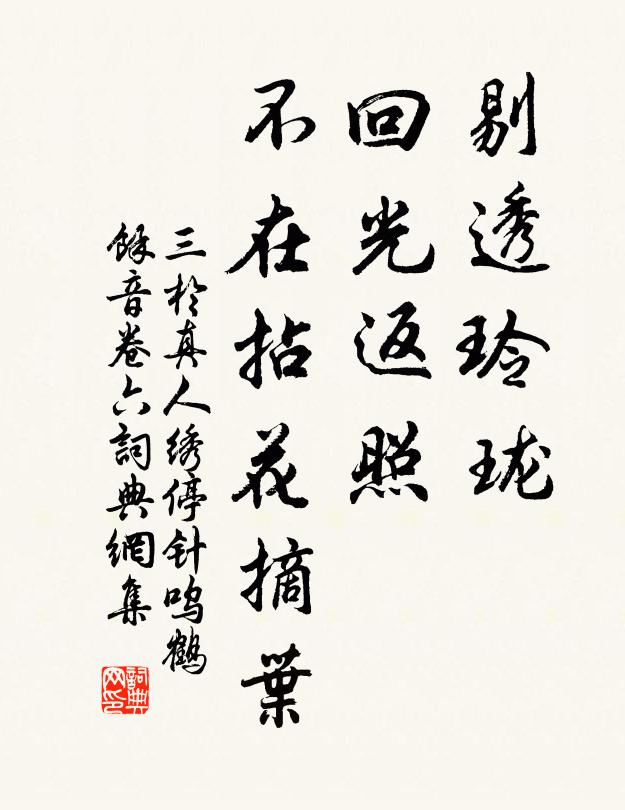 剔透玲珑
回光返照
不在拈花摘葉
三於真人绣停针鸣鹤
餘音卷六詞典網集
詞典网印